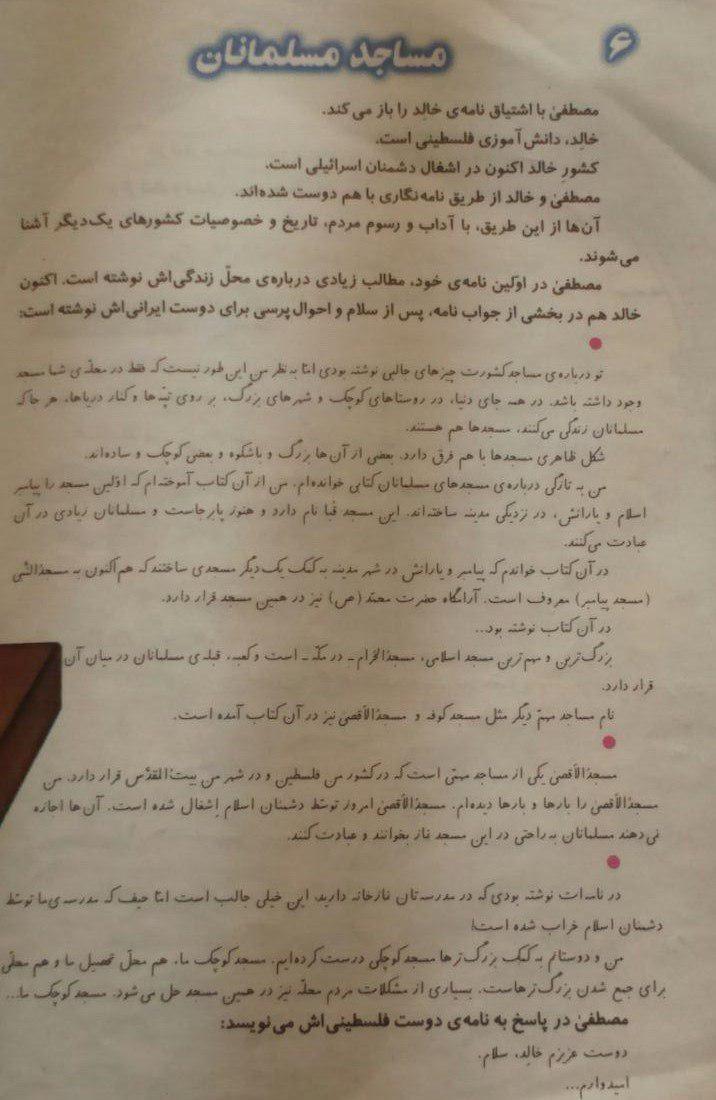 ۶
مساجد مسلمانان
مصطفیٰ با اشتیاق نامه‌ی خالِد را باز می‌کند.
خالِد، دانش‌آموزی فلسطینی است.
کشورِ خالد اکنون در اشغال دشمنان اسرائیلی است.
مصطفیٰ و خالد از طریق نامه‌نگاری با هم دوست شده‌اند.
آن‌ها از این طریق، با آداب و رسوم مردم، تاریخ و خصوصیات کشورهای یک‌دیگر آشنا
می‌شوند.
مصطفیٰ در اوّلین نامه‌ی خود، مطالب زیادی درباره‌ی محلّ زندگی‌اش نوشته است. اکنون
خالد هم در بخشی از جواب نامه، پس از سلام و احوال پرسی برای دوست ایرانی‌اش نوشته است:
تو درباره‌ی مساجد کشورت چیزهای جالبی نوشته بودی امّا به نظر من این طور نیست که فقط در محلّه‌ی شما مسجد
وجود داشته باشد. در همه جای دنیا، در روستاهای کوچک و شهرهای بزرگ، بر روی تپّه‌ها و کنار دریاها، هر جا که
مسلمانان زندگی می‌کنند، مسجدها هم هستند.
شکل ظاهری مسجدها با هم فرق دارد. بعضی از آن‌ها بزرگ و باشکوه و بعضی کوچک و ساده‌اند.
من به تازگی درباره‌ی مسجدهای مسلمانان کتابی خوانده‌ام. من از آن کتاب آموخته‌ام که اوّلین مسجد را پیامبر
اسلام و یارانش، در نزدیکی مدینه ساخته‌اند. این مسجد قُبا نام دارد و هنوز پابرجاست و مسلمانان زیادی در آن
عبادت می‌کنند.
در آن کتاب خواندم که پیامبر و یارانش در شهر مدینه به کمک یک‌دیگر مسجدی ساختند که هم‌اکنون به مسجدُالنَّبی
(مسجد پیامبر) معروف است. آرامگاه حضرت محمّد (ص) نیز در همین مسجد قرار دارد.
در آن کتاب نوشته بود...
بزرگ‌ترین و مهم‌ترین مسجد اسلامی، مسجدُالحَرام ـ در مکّه ـ است و کعبه، قبله‌ی مسلمانان در میان آن
قرار دارد.
نام مساجد مهمّ دیگر مثل مسجد کوفه و مسجدُالاَقصیٰ نیز در آن کتاب آمده است.
مسجدُالاَقصیٰ یکی از مساجد مهمّی است که در کشور من فلسطین و در شهر من بیتُ‌المُقدّس قرار دارد. من
مسجدُالاَقصیٰ را بارها و بارها دیده‌ام. مسجدُالاَقصیٰ امروز توسّط دشمنان اسلام اِشغال شده است. آن‌ها اجازه
نمی‌دهند مسلمانان به راحتی در این مسجد نماز بخوانند و عبادت کنند.
در نامه‌ات نوشته بودی که در مدرسه‌تان نمازخانه دارید، این خیلی جالب است امّا حیف که مدرسه‌ی ما توسّط
دشمنان اسلام خراب شده است!
من و دوستانم به کمک بزرگ‌ترها مسجد کوچکی درست کرده‌ایم. مسجد کوچک ما، هم محلّ تحصیل ما و هم محلّی
برای جمع شدن بزرگ‌ترهاست. بسیاری از مشکلات مردم محلّه نیز در همین مسجد حل می‌شود. مسجد کوچک ما...
مصطفیٰ در پاسخ به نامه‌ی دوست فلسطینی‌اش می‌نویسد:
دوست عزیزم خالِد، سلام.
امیدوارم...